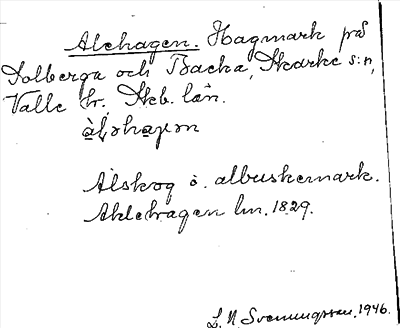 Alehagen. Hagmark på
Solberga och Backa, Skarke s:n,
Valle hr. Skb. län.
Alskog o. albuskemark.
Ahlehagen lm. 1829.
L. N. Svenungsson. 1946.